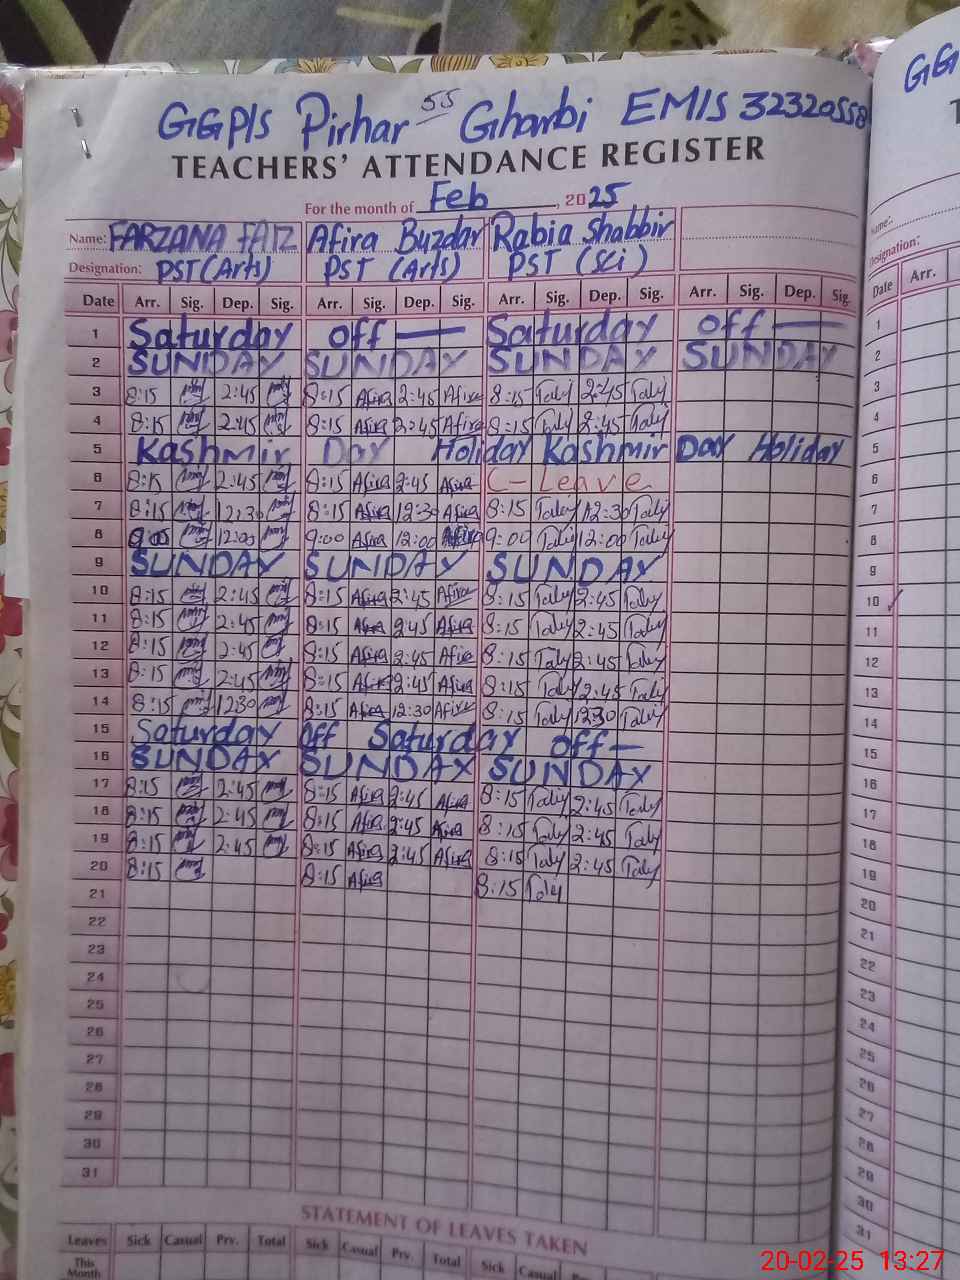 GGP/S Pirhar Gharbi EMIS 32320558
55
TEACHERS' ATTENDANCE REGISTER
For the month of Feb, 2025
Name: FARZANA FAIZ Afira Buzdar Rabia Shabbir
Designation: PST (Arts) PST (Arts) PST (Sci)
Date Arr. Sig. Dep. Sig. Arr. Sig. Dep. Sig. Arr. Sig. Dep. Sig. Arr. Sig. Dep. Sig.
1 Saturday off — Saturday off —
2 SUNDAY SUNDAY SUNDAY SUNDAY
3 8:15 2:45 8:15 Afira 2:45 Afira 8:15 2:45
4 8:15 2:45 8:15 Afira 2:45 Afira 8:15 2:45
5 Kashmir Day Holiday Kashmir Day Holiday
6 8:15 2:45 8:15 Afira 2:45 Afira C-Leave
7 8:15 12:30 8:15 Afira 12:30 Afira 8:15 12:30
8 9:00 12:00 9:00 Afira 12:00 Afira 9:00 12:00
9 SUNDAY SUNDAY SUNDAY
10 8:15 2:45 8:15 Afira 2:45 Afira 8:15 2:45
11 8:15 2:45 8:15 Afira 2:45 Afira 8:15 2:45
12 8:15 2:45 8:15 Afira 2:45 Afira 8:15 2:45
13 8:15 2:45 8:15 Afira 2:45 Afira 8:15 2:45
14 8:15 12:30 8:15 Afira 12:30 Afira 8:15 12:30
15 Saturday off Saturday off —
16 SUNDAY SUNDAY SUNDAY
17 8:15 2:45 8:15 Afira 2:45 Afira 8:15 2:45
18 8:15 2:45 8:15 Afira 2:45 Afira 8:15 2:45
19 8:15 2:45 8:15 Afira 2:45 Afira 8:15 2:45
20 8:15 8:15 Afira 8:15
21
22
23
24
25
26
27
28
29
30
31
STATEMENT OF LEAVES TAKEN
Leaves Sick Casual Prv. Total Sick Casual Prv. Total Sick Casual
This Month
GG
T
Name:
Designation:
Date Arr.
1
2
3
4
5
6
7
8
9
10
11
12
13
14
15
16
17
18
19
20
21
22
23
24
25
26
27
28
29
30
31
20-02-25 13:27